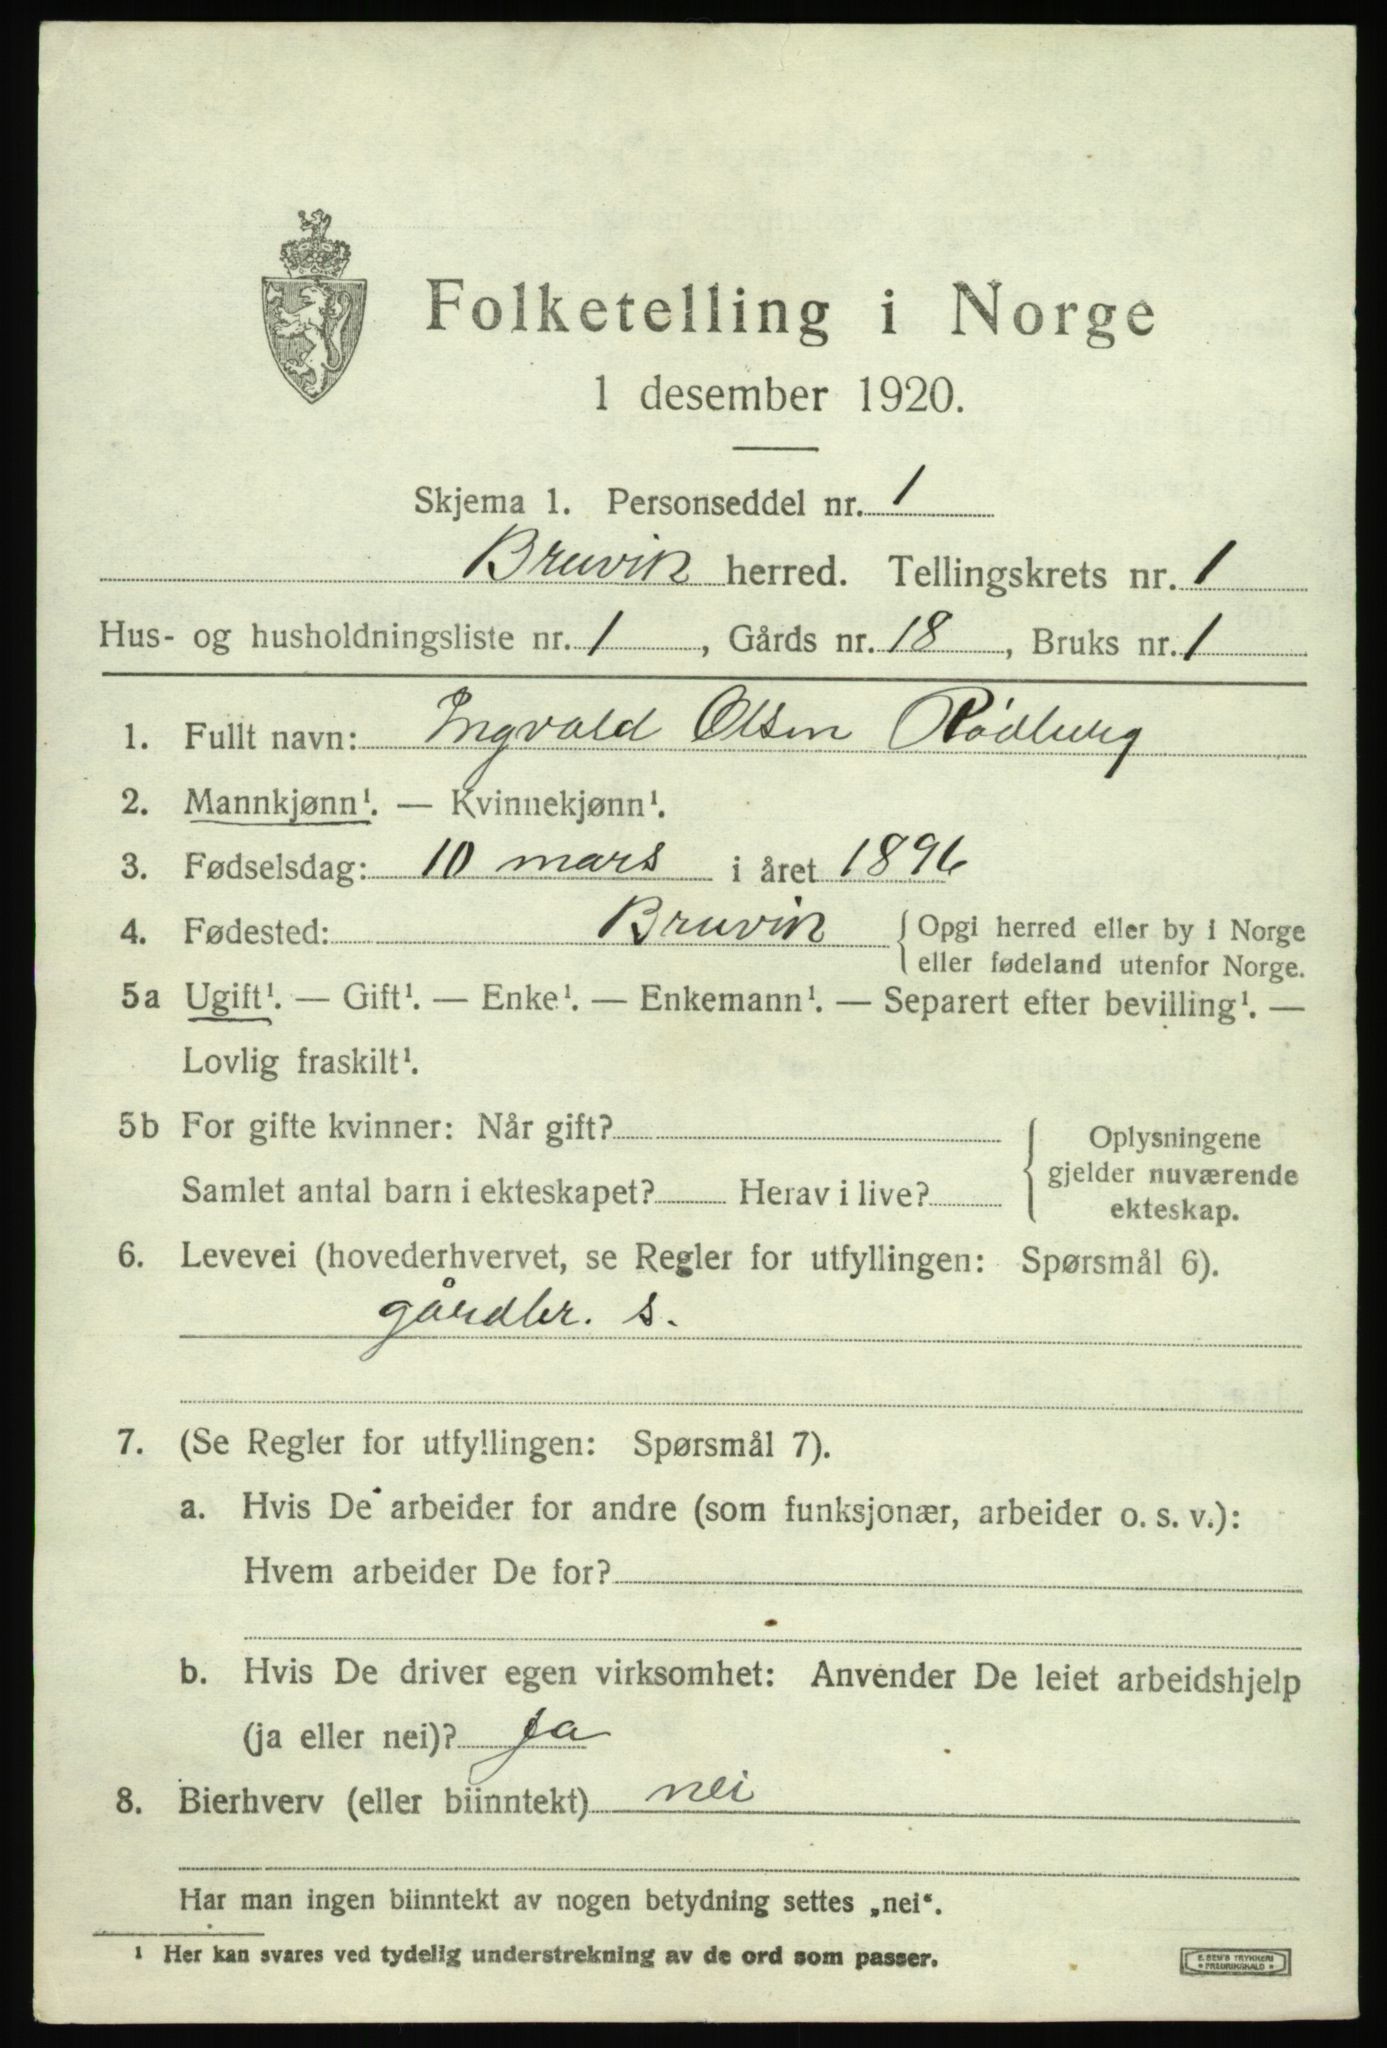 Folketelling i Norge
1 desember 1920.
Skjema 1. Personseddel nr. 1
Bruvik herred. Tellingskrets nr. 1
Hus- og husholdningsliste nr. 1, Gårds nr. 18, Bruks nr. 1
1. Fullt navn: Ingvald Olsen Rødberg
2. Mannkjønn¹. — Kvinnekjønn¹.
3. Fødselsdag: 10 mars i året 1896
4. Fødested: Bruvik { Opgi herred eller by i Norge
eller fødeland utenfor Norge.
5a Ugift¹. — Gift¹. — Enke¹. — Enkemann¹. — Separert efter bevilling¹. —
Lovlig fraskilt¹.
5b For gifte kvinner: Når gift? { Oplysningene
gjelder nuværende
Samlet antal barn i ekteskapet? Herav i live? ekteskap.
6. Levevei (hovederhvervet, se Regler for utfyllingen: Spørsmål 6).
gårdbr. s.
7. (Se Regler for utfyllingen: Spørsmål 7).
a. Hvis De arbeider for andre (som funksjonær, arbeider o. s. v.):
Hvem arbeider De for?
b. Hvis De driver egen virksomhet: Anvender De leiet arbeidshjelp
(ja eller nei)? Ja
8. Bierhverv (eller biinntekt) nei
Har man ingen biinntekt av nogen betydning settes „nei“.
¹ Her kan svares ved tydelig understrekning av de ord som passer.
E. SEM'S TRYKKERI
FREDRIKSHALD